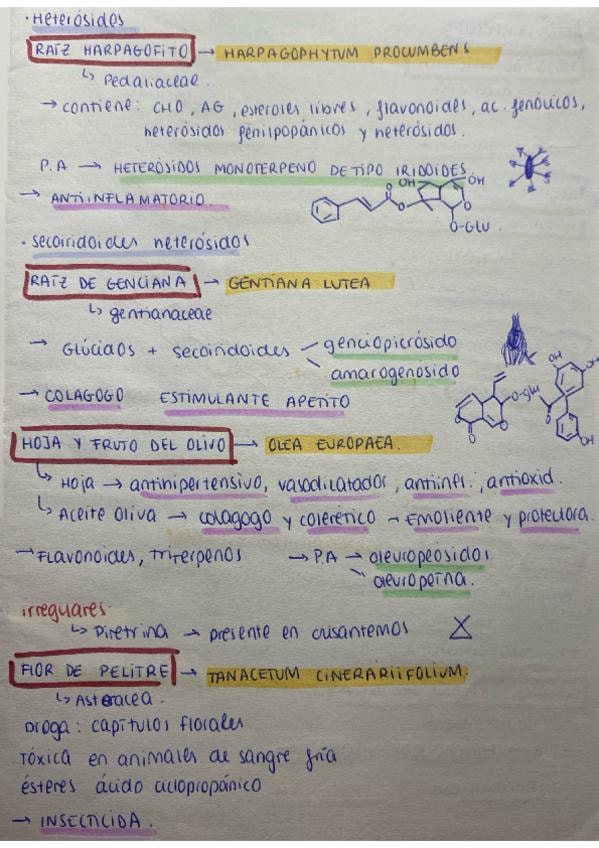 · Heterósidos
RAÍZ HARPAGOFITO → HARPAGOPHYTUM PROCUMBENS
↳ Pedaliaceae.
→ contiene: CHO, AG, esteroles libres, flavonoides, ac. fenólicos,
heterósidos fenilpopánicos y heterósidos.
P.A → HETERÓSIDOS MONOTERPENO DE TIPO IRIDOIDES
→ ANTIINFLAMATORIO.
OH OH
O O O
O-GLU.
· Secoiridoides heterósidos
RAÍZ DE GENCIANA → GENTIANA LUTEA
↳ gentianaceae
→ GLÚCIDOS + secoiridoides genciopicrósido
amarogenósido
→ COLAGOGO ESTIMULANTE APETITO
O-glu O OH OH
O O OH
HOJA Y FRUTO DEL OLIVO → OLEA EUROPAEA.
↳ Hoja → antihipertensivo, vasodilatador, antiinfl., antioxid.
↳ Aceite oliva → colagogo y colerético → Emoliente y protectora.
→ Flavonoides, triterpenos → P.A → oleuropeósidos
oleuropeína.
irregulares·
↳ Piretrina → presente en crisantemos
FLOR DE PELITRE → TANACETUM CINERARIIFOLIUM.
↳ Asteracea.
Droga: capítulos florales
Tóxica en animales de sangre fría
ésteres ácido ciclopropánico
→ INSECTICIDA.